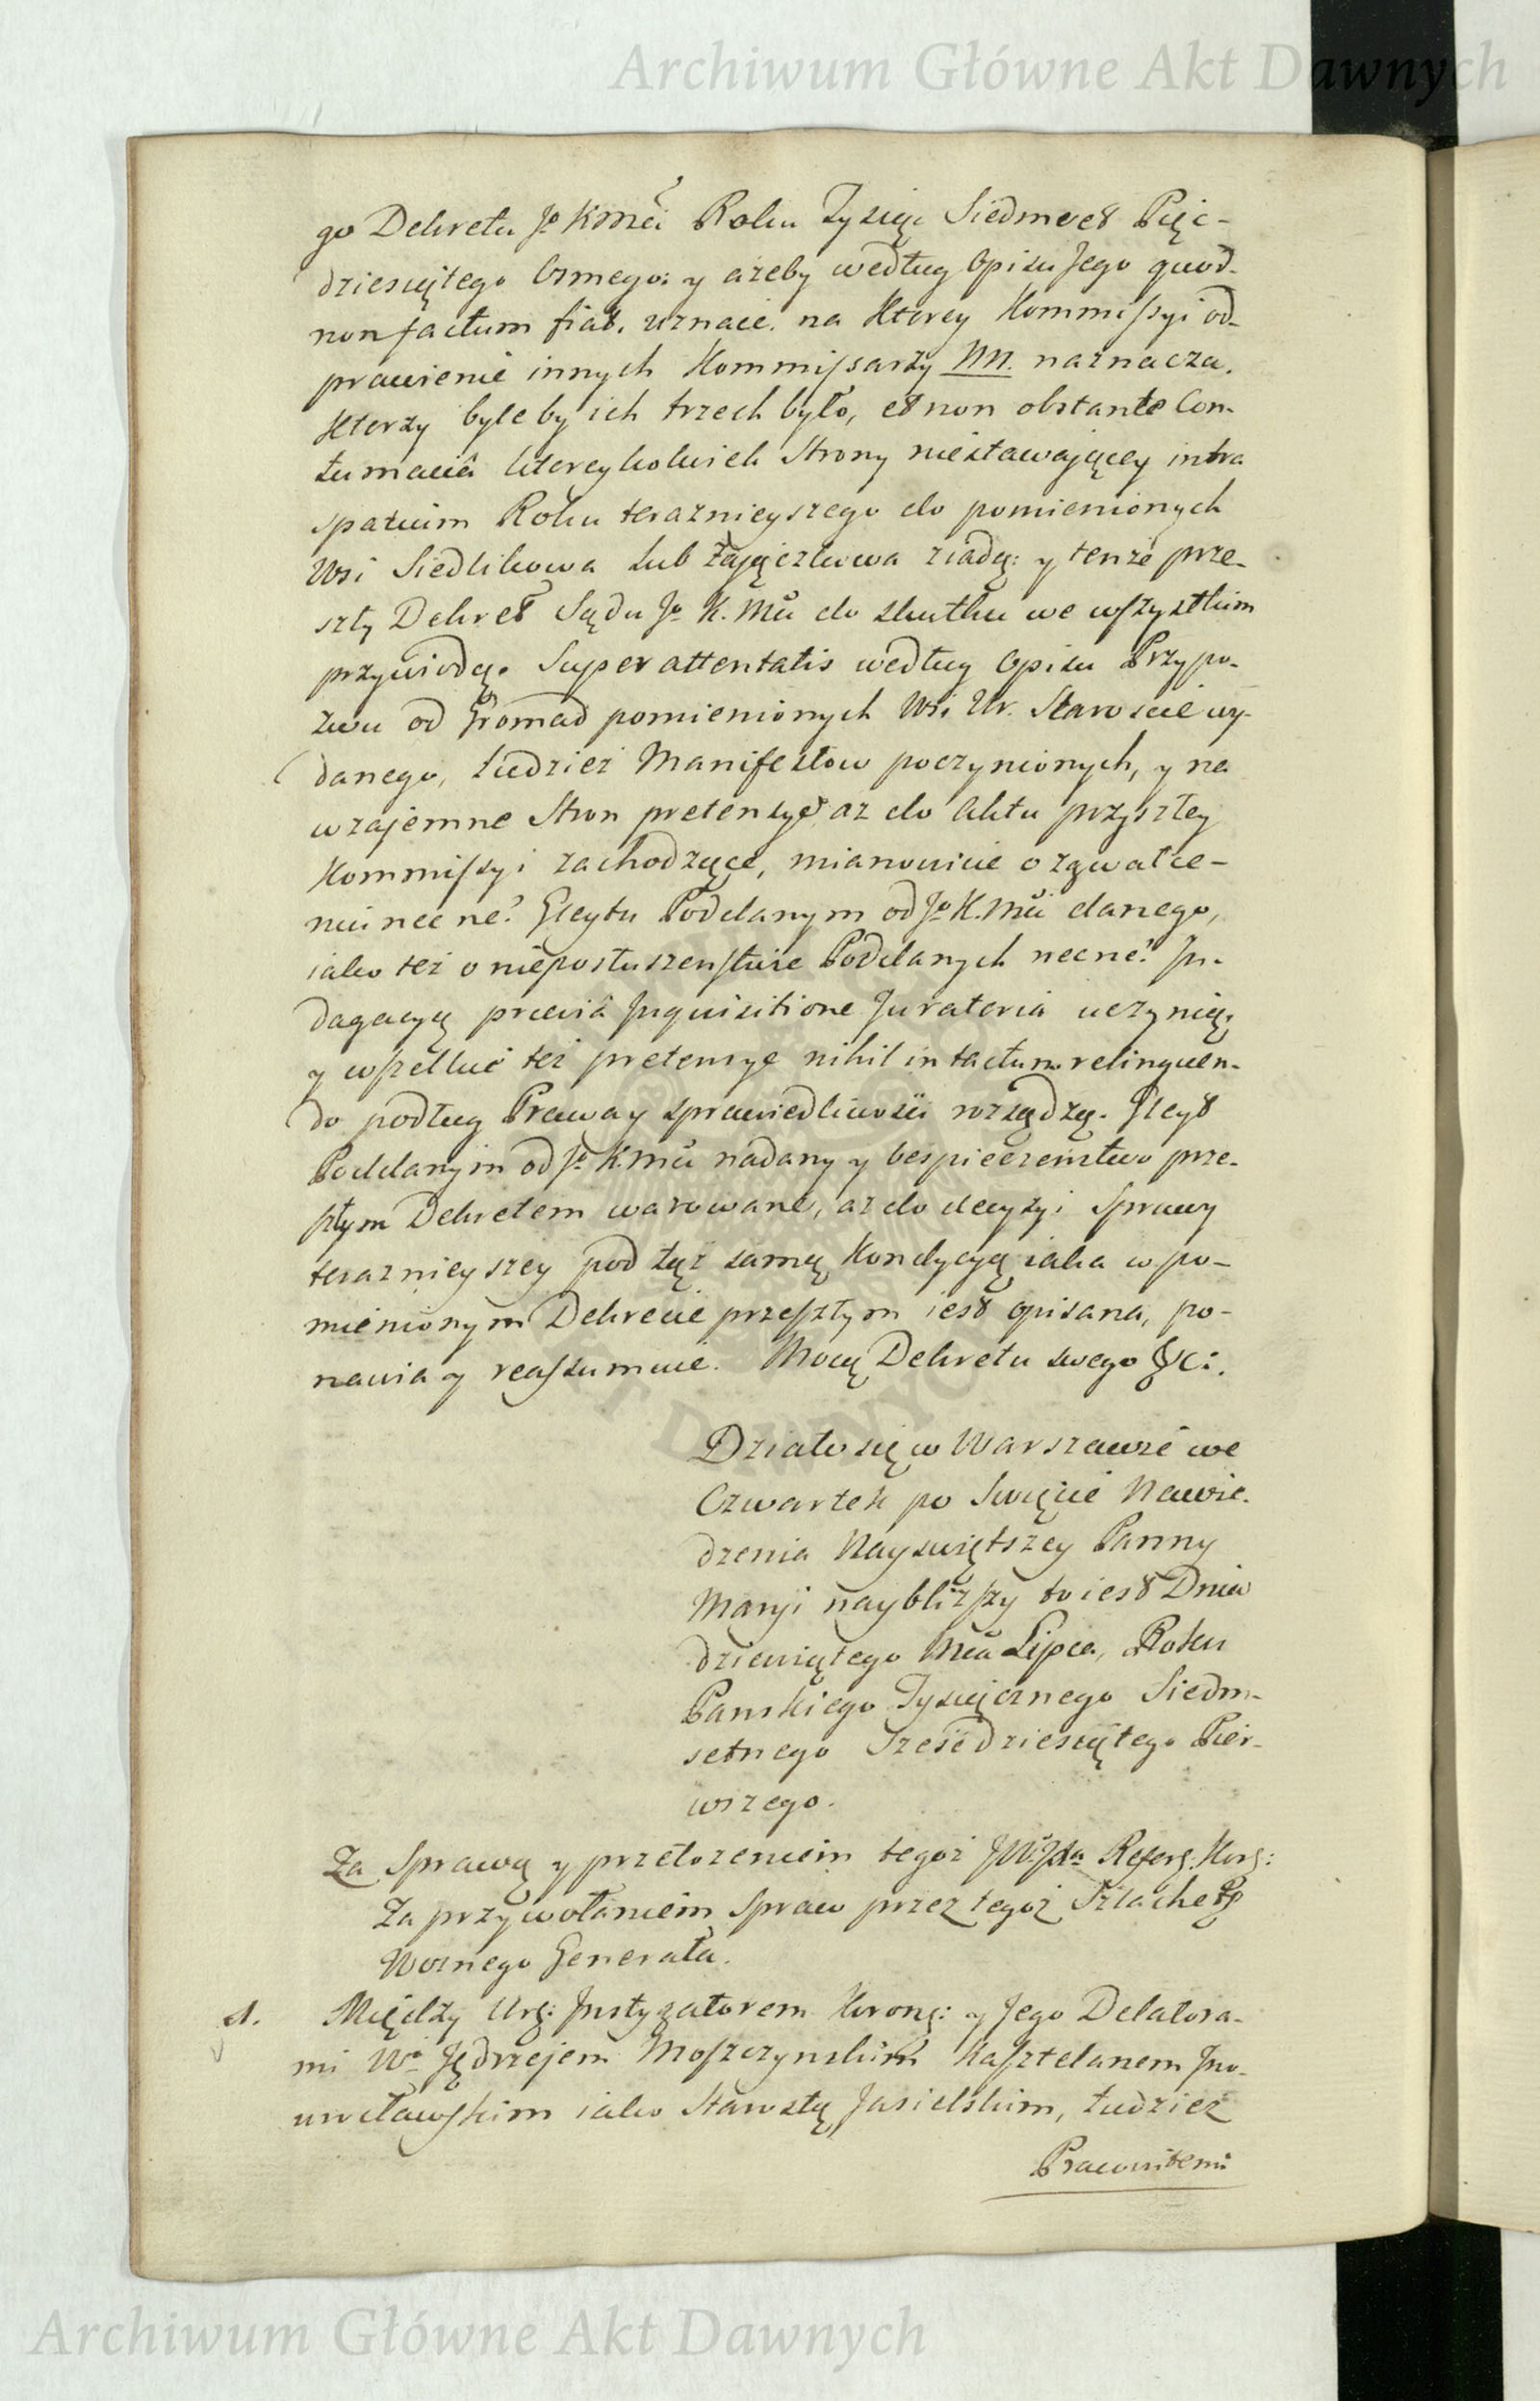 Archiwum Główne Akt Dawnych
go Dekretu Jo KMći Roku Tysiąc Siedmset Pięć-
dziesiątego Osmego: y ażeby według Opisu Jego quod-
non factum fiat, uznaie. na ktorey Kommissyi od-
prawienie innych Kommissarzy NN. naznacza.
Ktorzy byle by ich trzech było, et non obstante Con-
tumaciâ ktoreykolwiek Strony niestawaiącey intra
spatium Roku teraznieyszego do pomienionych
Wsi Siedlikowa lub Zaięczkowa ziadą: y tenże prze-
szły Dekret Sądu Jo K. Mći do skutku we wszystkim
przywiodą. Super attentatis według Opisu Przypo-
zwu od Gromad pomienionych Wsi Ur. Staroscie wy-
danego, tudzież Manifestow poczynionych, y na
wzaiemne Stron pretensye aż do Aktu przyszłey
Kommissyi zachodzące, mianowicie o zgwałce-
niu nec ne? Gleytu Poddanym od Jo K. Mći danego,
iako też o nieposłuszeństwie Poddanych necne? In-
dagacyą praeviâ Inquisitione Juratoria uczynią;
y wszelkie też pretensye nihil intactum relinquen-
do podług Prawa y sprawiedliwości rozsądzą. Gleyt
Poddanym od Jo K. Mći nadany y bespieczeństwo prze-
szłym Dekretem warowane, aż do decyzyi Sprawy
teraznieyszey pod tąż samą Kondycyą iaka w po-
mienionym Dekrecie przeszłym iest opisana, po-
nawia y reassumuie. Mocą Dekretu swego &c:.
Działo się w Warszawie we
Czwartek po Swięcie Nawie-
dzenia Nayswiętszey Panny
Maryi naybliższy to iest Dnia
dziewiątego Mca Lipca, Roku
Panskiego Tysiącznego Siedm-
setnego Sześćdziesiątego Pier-
wszego.
Za Sprawą y przełożeniem tegoż JW. Jdza Referg: Korg:
Za przywołaniem Spraw przez tegoż Szlachetg
Woznego Generała.
1. Między Urg: Instygatorem Korong: y Jego Delatora-
mi Wo Jędrzejem Moszczynskim Kasztelanem Ino-
wrocławskim iako Starostą Jasielskim, tudzież
Pracowitemi
Archiwum Główne Akt Dawnych